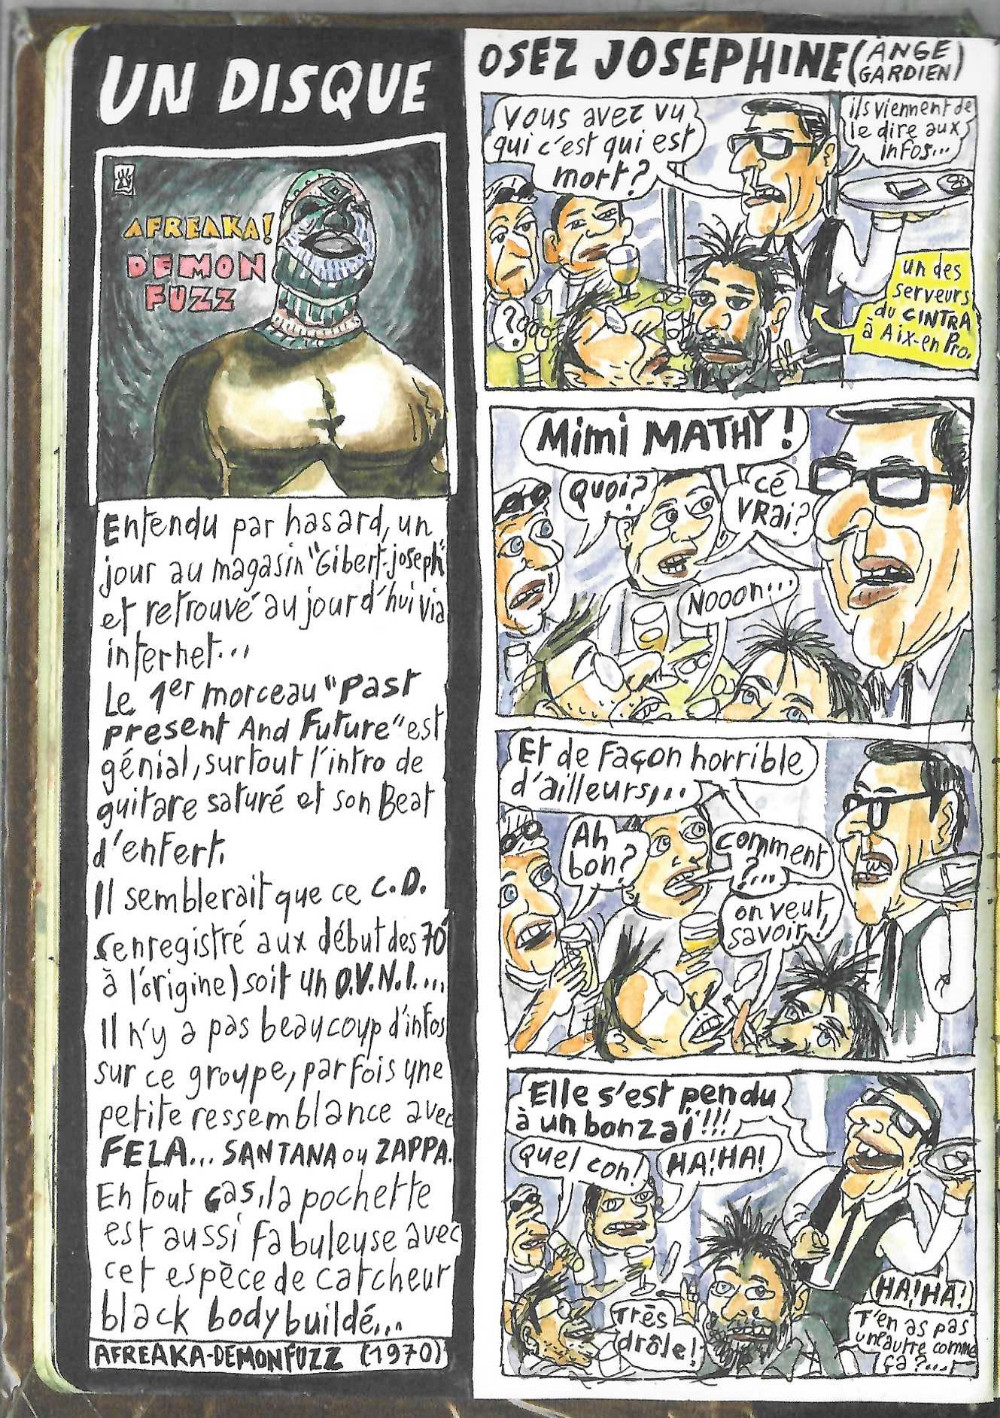 UN DISQUE
AFREAKA!
DEMON
FUZZ
Entendu par hasard, un
jour au magasin "Gibert-joseph"
et retrouvé aujourd'hui via
internet...
Le 1er morceau "Past
present And Future" est
génial, surtout l'intro de
guitare saturé et son Beat
d'enfert.
Il semblerait que ce C.D.
(enregistré aux début des 70'
à l'origine) soit un O.V.N.I....
Il n'y a pas beaucoup d'infos
sur ce groupe, parfois une
petite ressemblance avec
FELA... SANTANA ou ZAPPA.
En tout cas, la pochette
est aussi fabuleuse avec
cet espèce de catcheur
black bodybuildé...
AFREAKA-DEMONFUZZ (1970)
OSEZ JOSEPHINE (ÀNGE
GARDIEN)
Vous avez vu
qui c'est qui est
mort?
ils viennent de
le dire aux
infos...
un des
serveurs
du CINTRA
à Aix-en Pro.
?
Mimi MATHY!
Quoi?
cé
VRai?
Nooon...
Et de Façon horrible
d'ailleurs,...
Ah
bon?
comment
?...
on veut
savoir!
Elle s'est pendu
à un bonzaï!!!
Quel con!
HA!HA!
Très
drôle!
HA!HA!
T'en as pas
un autre comme
ça?...